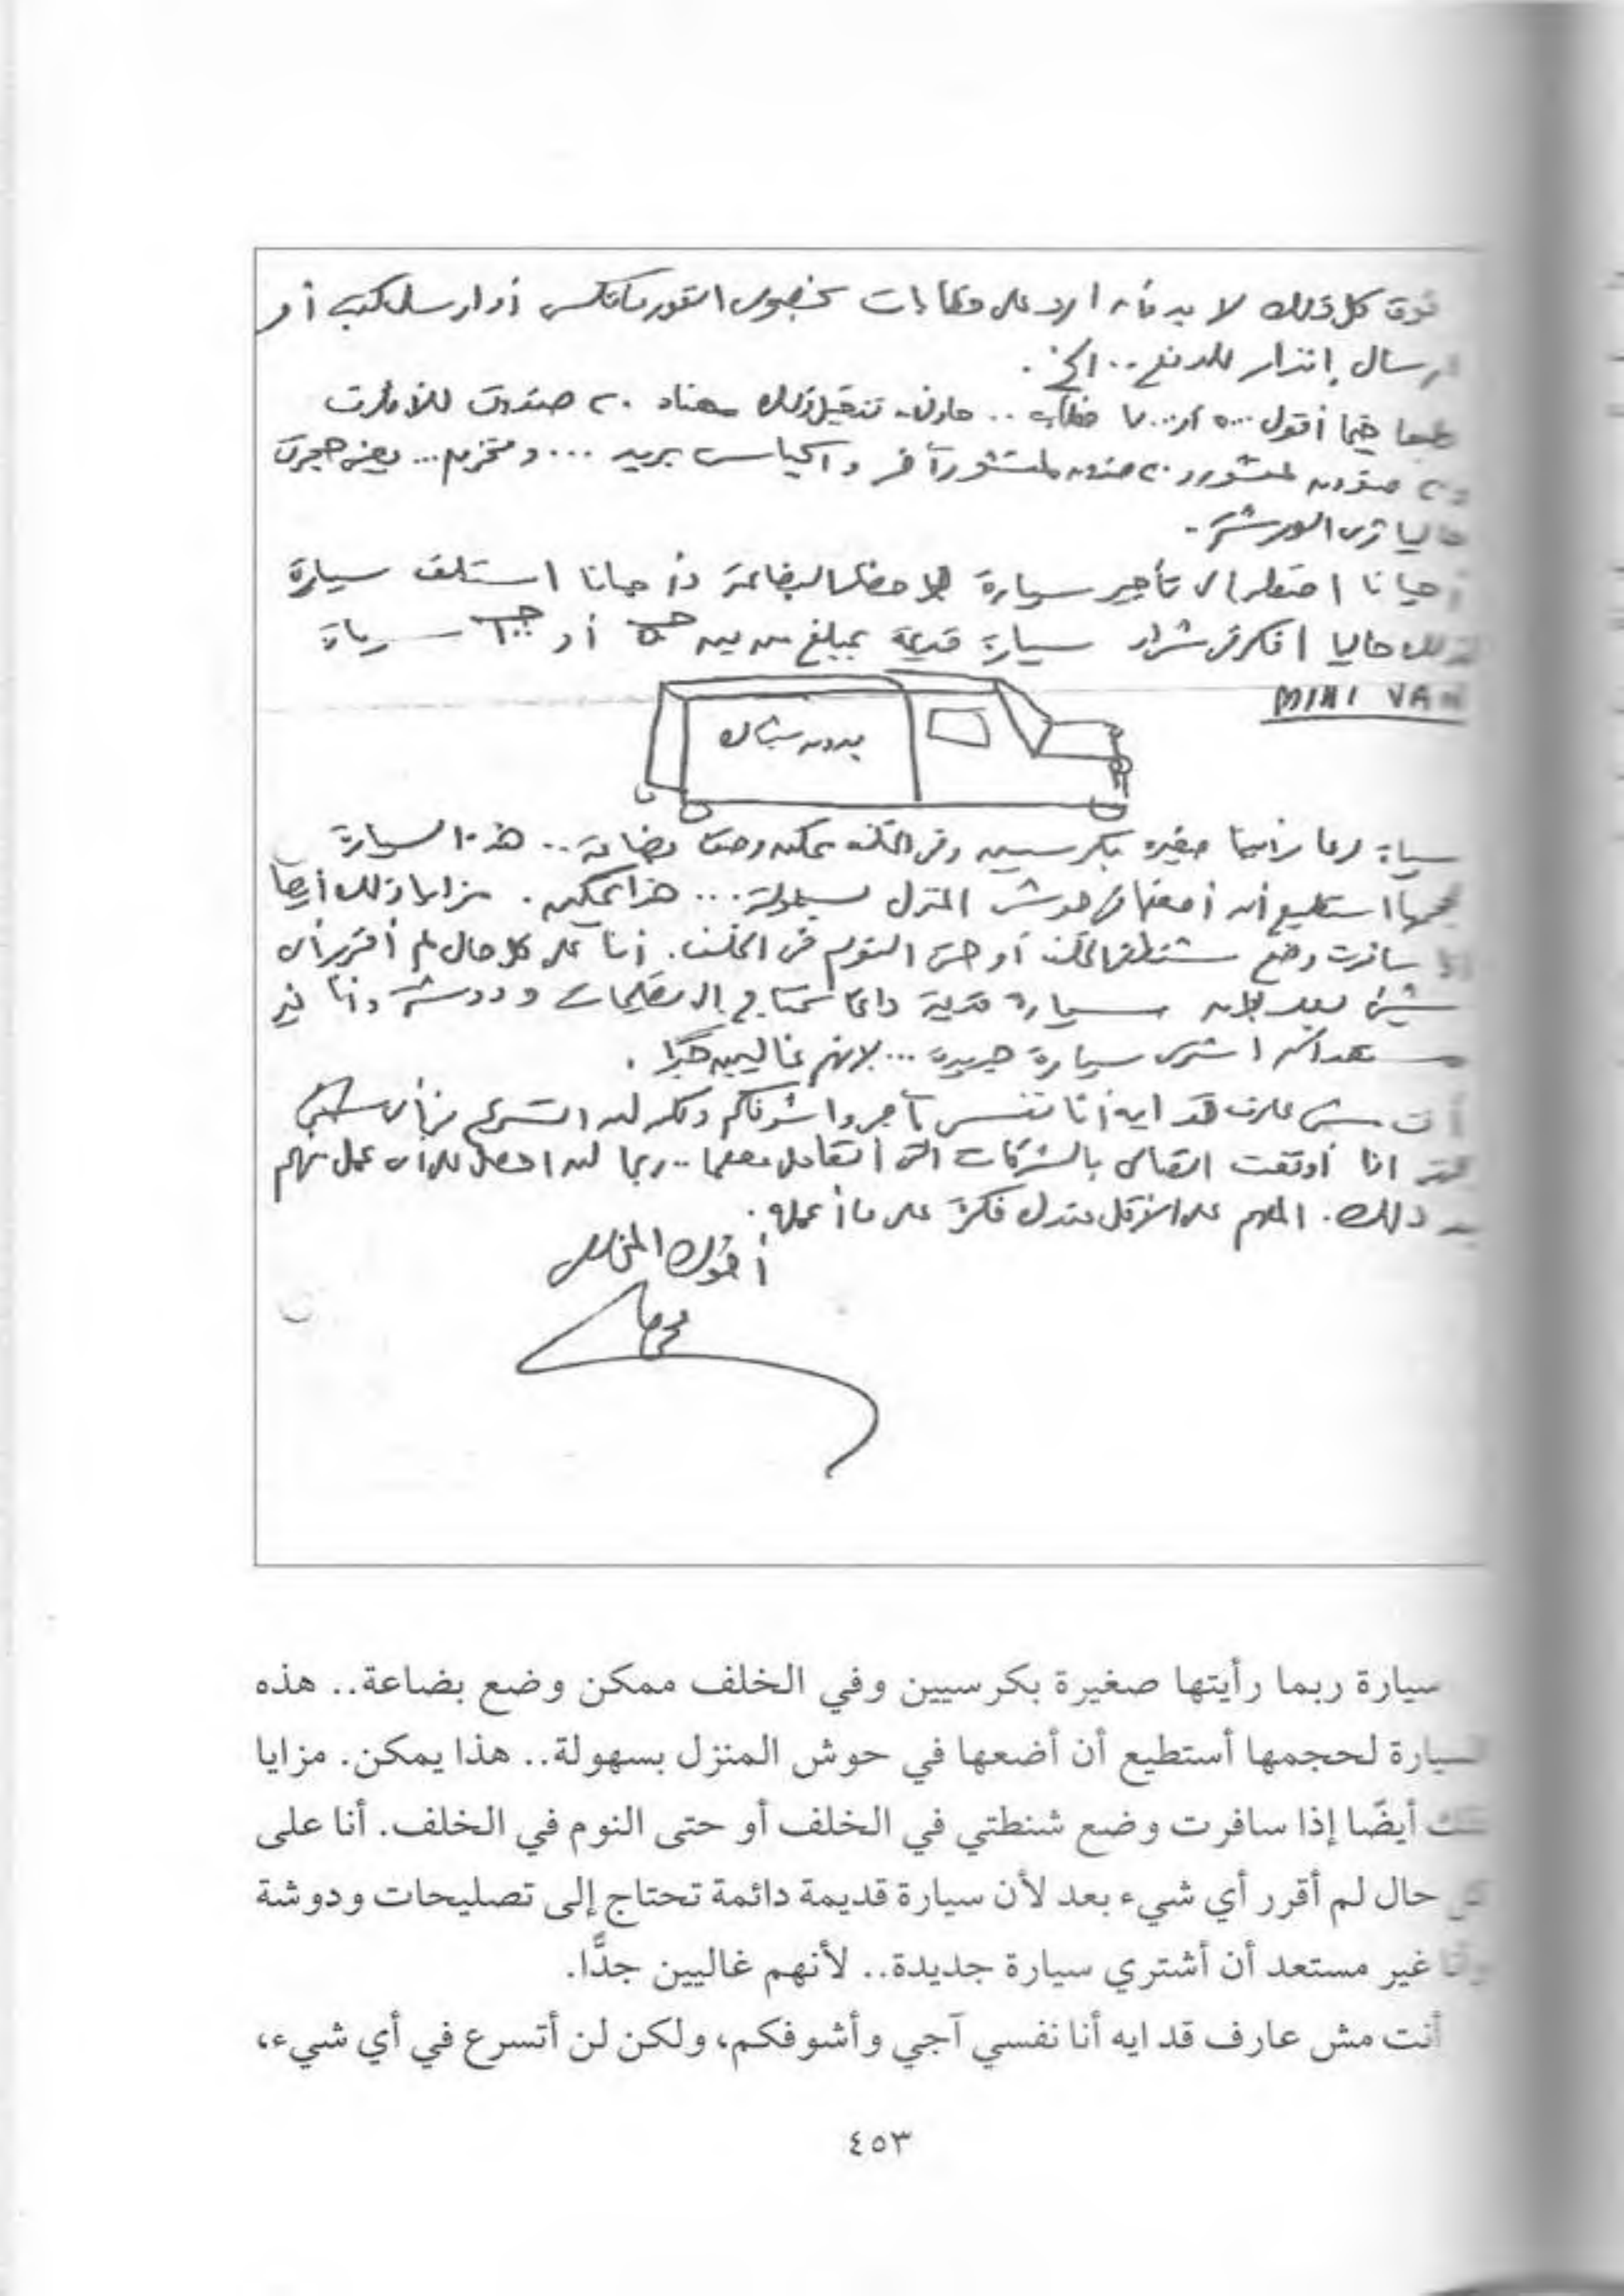 فوق كل ذلك لا بد وأن أرد على خطابات بخصوص أو ارسال كتب أو
ارسال إنذار للدفع .. الخ .
طبعا حينما أقول ٥٠٠٠ أو ٧٠٠٠ خطاب .. حاول تخيل ذلك هناك ٢٠ صندوق للأظرف
و٢٠ صندوق لمنشور و٢٠ صندوق لمنشور آخر وأكياس بريد ... ومخزن ... يعني حجرتي
حاليا زي الورشة .
أحيانا اضطر إلى تأجير سيارة البضاعة وأحيانا استلف سيارة
لذلك حاليا أفكر في شراء سيارة قديمة بمبلغ من بين أو سيارة
MINI VAN
بدون شباك
سيارة ربما رأيتها صغيرة بكرسيين وفي الخلف ممكن وضع بضاعة .. هذه السيارة
لحجمها استطيع أن أضعها في حوش المنزل بسهولة ... هذا يمكن . مزايا ذلك أيضا
إذا سافرت وضع شنطتي في الخلف أو حتى النوم في الخلف . أنا على كل حال لم أقرر أي
شيئ بعد لأن سيارة قديمة دائما تحتاج إلى تصليحات ودوشة وأنا غير
مستعد أن اشترى سيارة جديدة ... لأنهم غاليين جدًا .
أنت مش عارف قد ايه أنا نفسي آجي واشوفكم ولكن لن اتسرع في أي شيئ
انا أوقفت اتصالى بالشركات التي أتعامل معها .. ربما لن احصل على أي عمل منهم
بعد ذلك . المهم على الأقل عندك فكرة على ما أعمله .
أخوك المخلص
سيارة ربما رأيتها صغيرة بكرسيين وفي الخلف ممكن وضع بضاعة.. هذه
السيارة لحجمها أستطيع أن أضعها في حوش المنزل بسهولة.. هذا يمكن. مزايا
ذلك أيضًا إذا سافرت وضع شنطتي في الخلف أو حتى النوم في الخلف. أنا على
كل حال لم أقرر أي شيء بعد لأن سيارة قديمة دائمة تحتاج إلى تصليحات ودوشة
وأنا غير مستعد أن أشتري سيارة جديدة.. لأنهم غاليين جدًّا.
أنت مش عارف قد ايه أنا نفسي آجي وأشوفكم، ولكن لن أتسرع في أي شيء،
٤٥٣